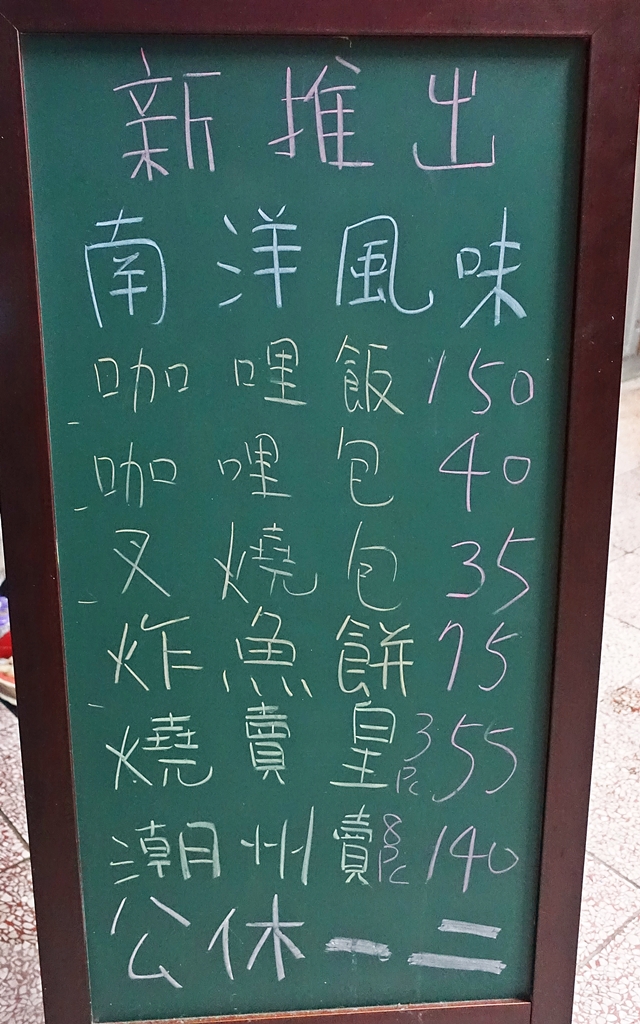 新推出
南洋風味
咖哩飯 150
咖哩包 40
叉燒包 35
炸魚餅 75
燒賣皇 3Pc 55
潮州賣 8Pc 140
公休一二